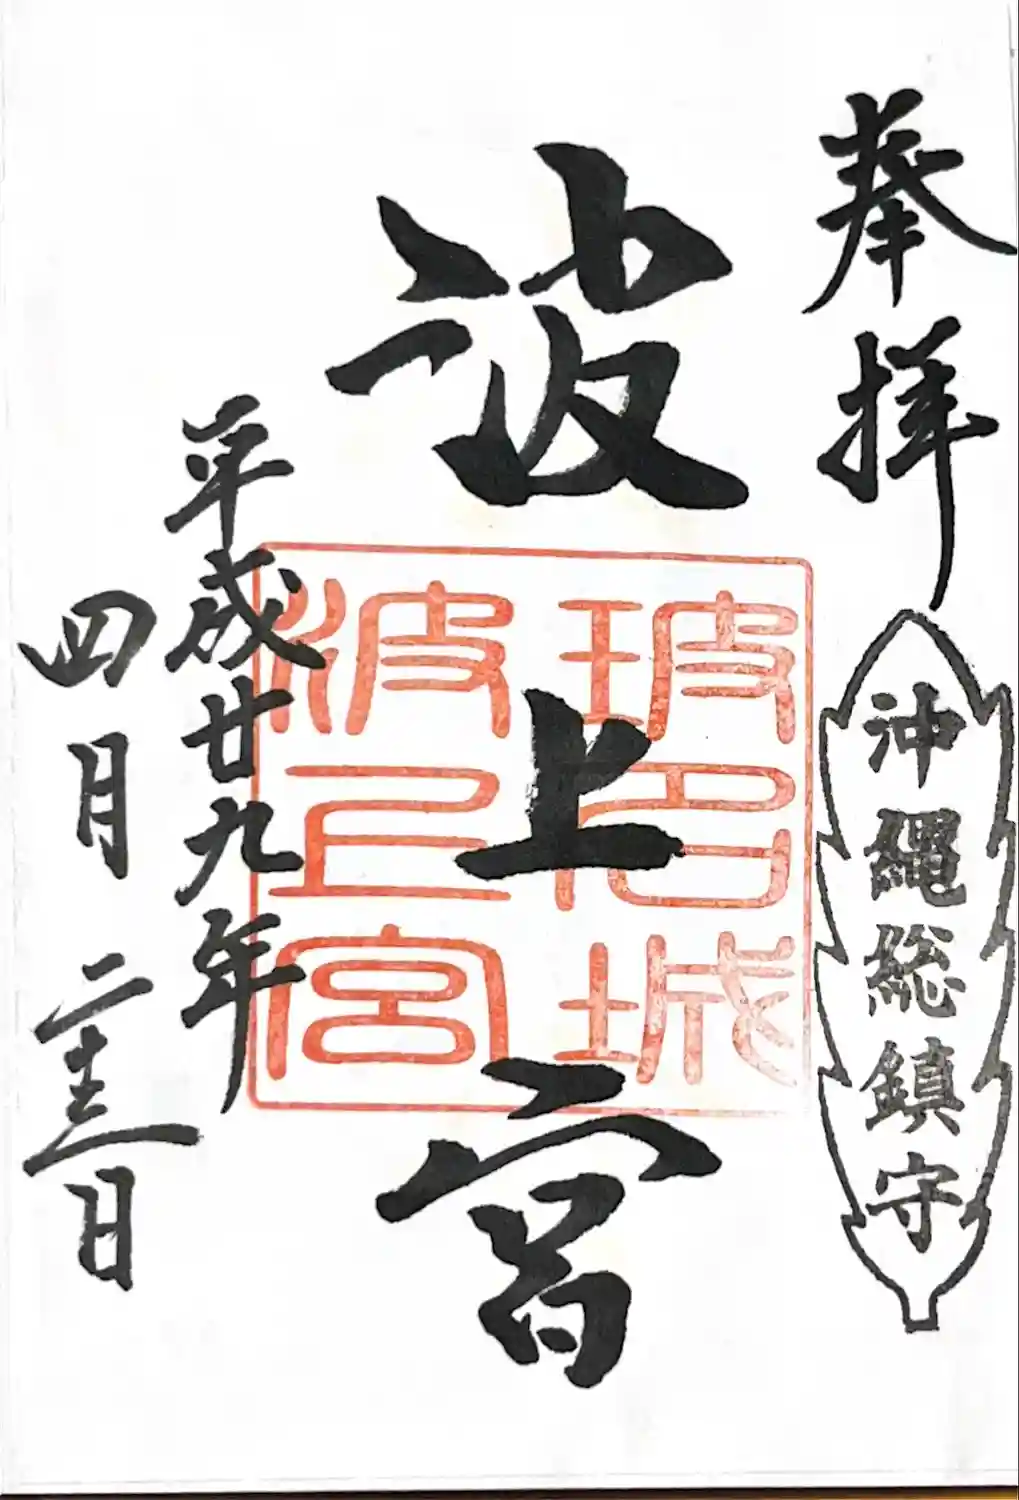 奉拝
沖縄総鎮守
波上宮
玻名城
波上宮
平成廿九年
四月二十三日